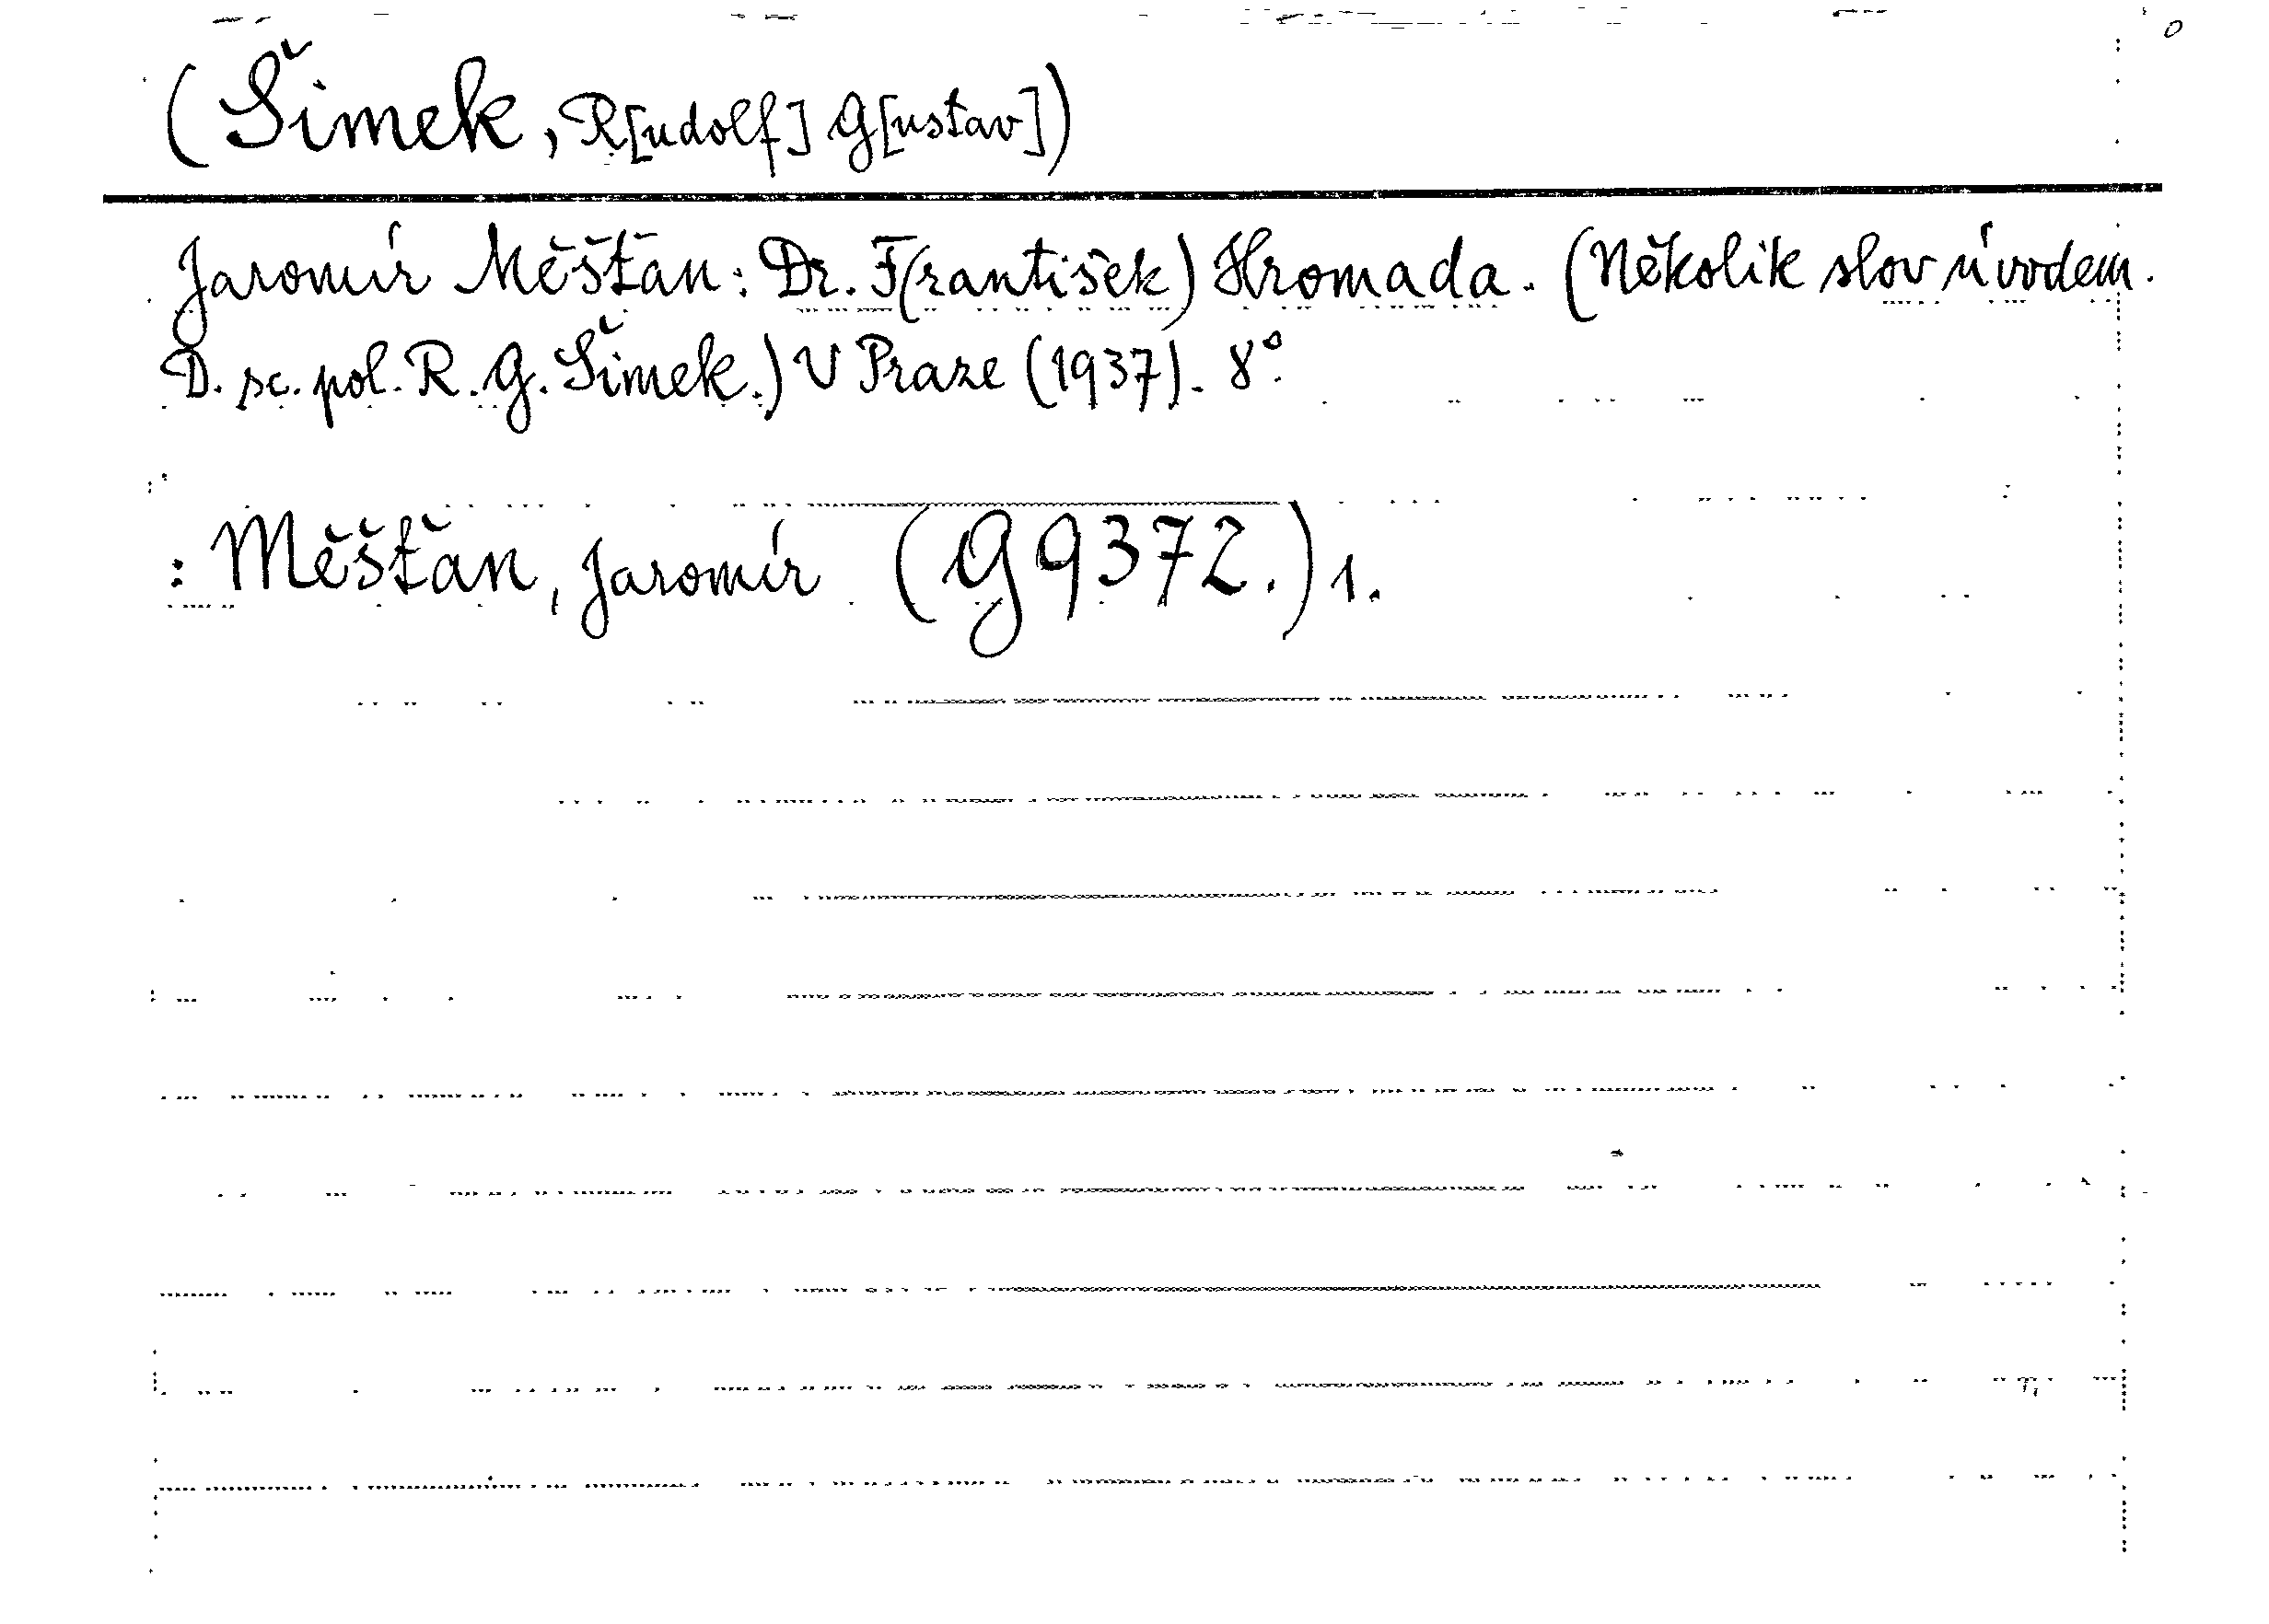 (Šimek, R[udolf] G[ustav])
Jaromír Měšťan: Dr. F(rantišek) Hromada. (Několik slov úvodem.
D. sc. pol. R. G. Šimek.) V Praze (1937). 8°.
: Měšťan, Jaromír (G 9372.) 1.